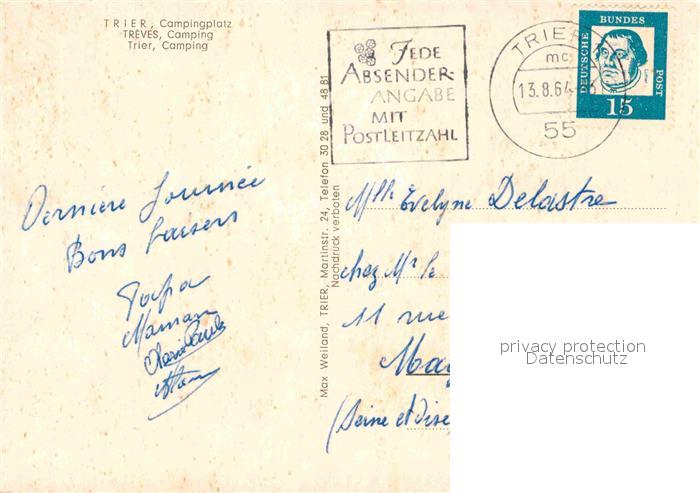 TRIER, Campingplatz
TRÈVES, Camping
Trier, Camping
JEDE
ABSENDER-
ANGABE
MIT
POSTLEITZAHL
TRIER
mc
13.8.64
55
DEUTSCHE
BUNDES
POST
15
Dernière Journée
Bons baisers
Papa
Maman
Max Weiland, TRIER, Martinstr. 24, Telefon 30 28 und 48 81
Nachdruck verboten
Mlle Evelyne Delastre
chez Mr le
11 rue
(Seine et Oise
privacy protection
Datenschutz